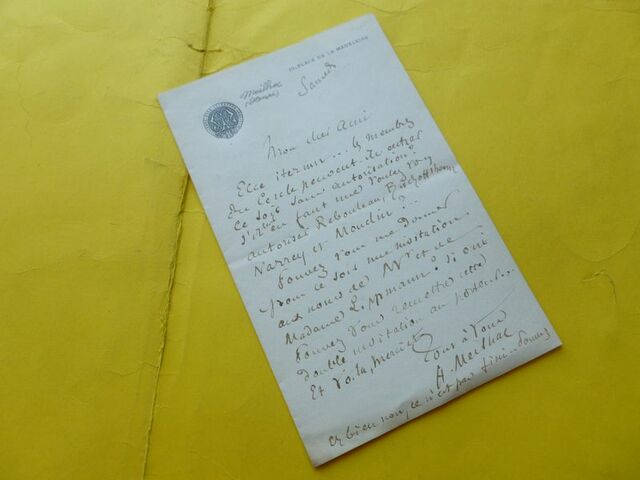 30, PLACE DE LA MADELEINE
Meilhac
(Henri)
Samedi
Mon cher ami
Et iterum... les membres
du Cercle peuvent ils entrer
ce soir sans autorisation?
S'il en faut une voulez vous
autoriser Reboulleau, Bischoffsheim
Narrey et
Pouvez vous me donner
pour ce soir une invitation
aux noms de Mr et de
Madame Lippmann? si oui
pouvez vous remettre cette
double invitation au porteur...
Et voila, merci
Tout à vous
H. Meilhac
Eh bien non, ce n'est pas fini... donnez